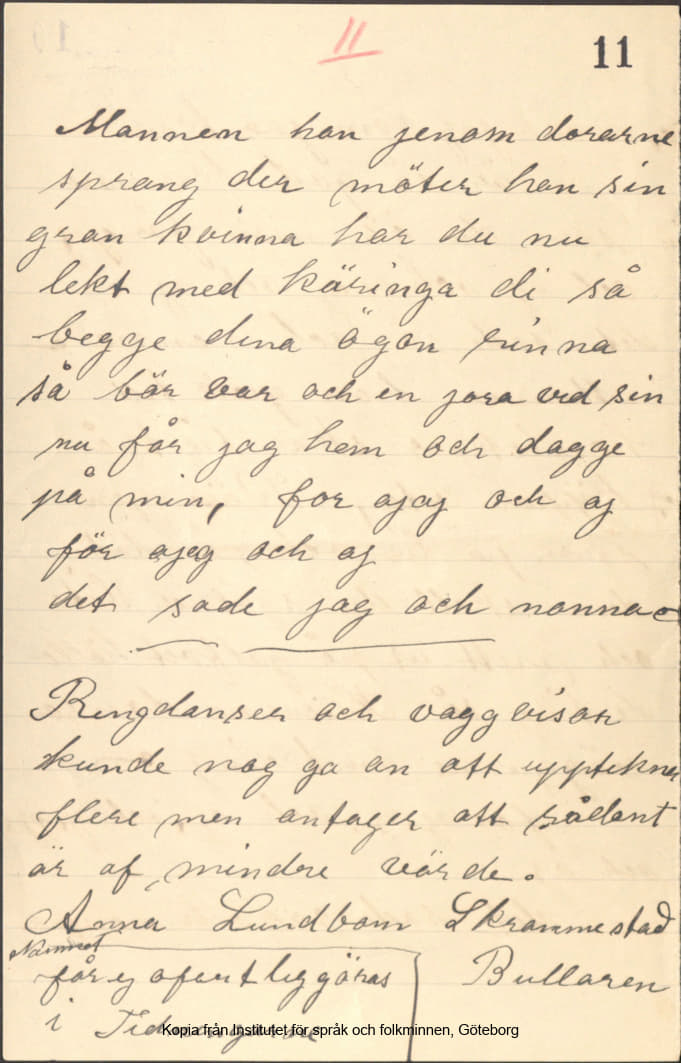 11
11
Mannen han jenom dorarne
sprang der möter han sin
gran kvinna har du nu
lekt med käringa di så
begge dina ögon rinna
så bär var och en jora ved sin
nu får jag hem och dagge
på min, for ajaj och aj
för ajaj och aj
det sade jag och nonna
Ringdanser och vaggvisor
kunde nog ga an att uppteknas
flere men antager att sådant
är af mindre värde.
Anna Lundbom Skrammestad
Namnet
får ej ofentliggöras Bullaren
i Tidningarna
Kopia från Institutet för språk och folkminnen, Göteborg